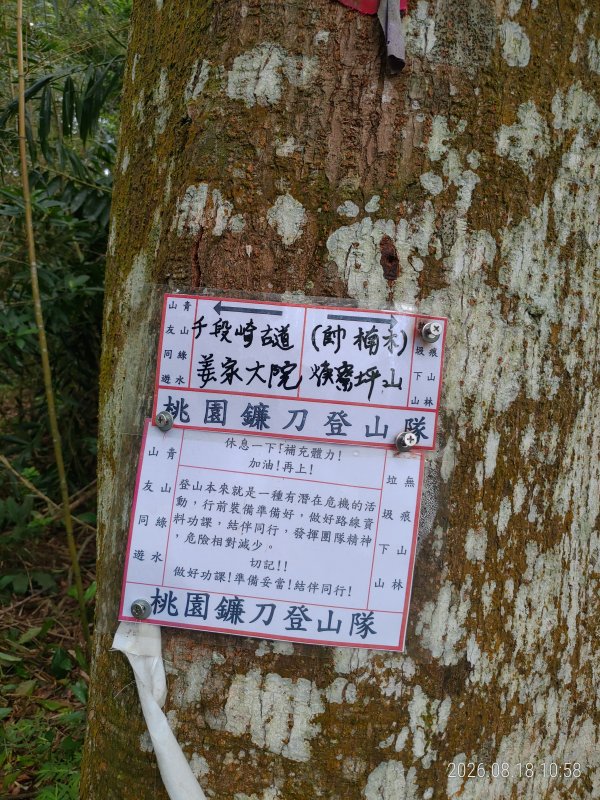 青山綠水
山友同遊
← →
千段崎古道 (帥楠木)
姜家大院 坪山
痕山林
圾下山
桃園鐮刀登山隊
休息一下!補充體力!
加油!再上!
青山綠水
山友同遊
登山本來就是一種有潛在危機的活
動,行前裝備準備好,做好路線資
料功課,結伴同行,發揮團隊精神
,危險相對減少。
切記!!
做好功課!準備妥當!結伴同行!
無痕山林
垃圾下山
桃園鐮刀登山隊
2026.08.18 10:58